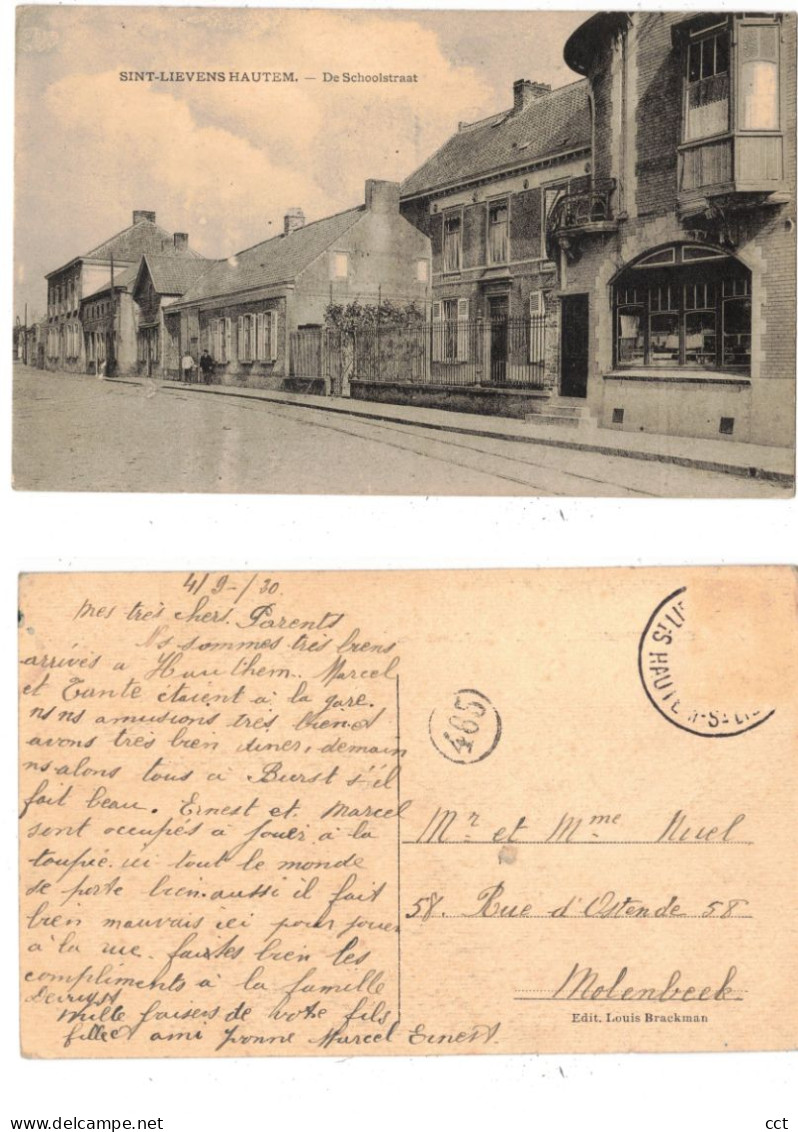 SINT-LIEVENS HAUTEM. — De Schoolstraat
4/9-/30
Mes très chers Parents
Ns sommes très biens
arrivés a Hauthem. Marcel
et Tante étaient à la gare.
ns ns amusions très bien et
avons très bien diner, demain
ns alons tous a Burst s'il
fait beau. Ernest et Marcel
sont occupés à jouer à la
toupie. ici tout le monde
se porte bien. aussi il fait
bien mauvais ici pour jouer
à la rue. faites bien les
compliments à la famille
Deruyst
Mille baisers de votre fils
fille et ami Yvonne Marcel Ernest.
465
Sts HAUTEM-St LIE
Mr et Mme Nuel
58. Rue d'Ostende 58
Molenbeek
Edit. Louis Brackman
cct